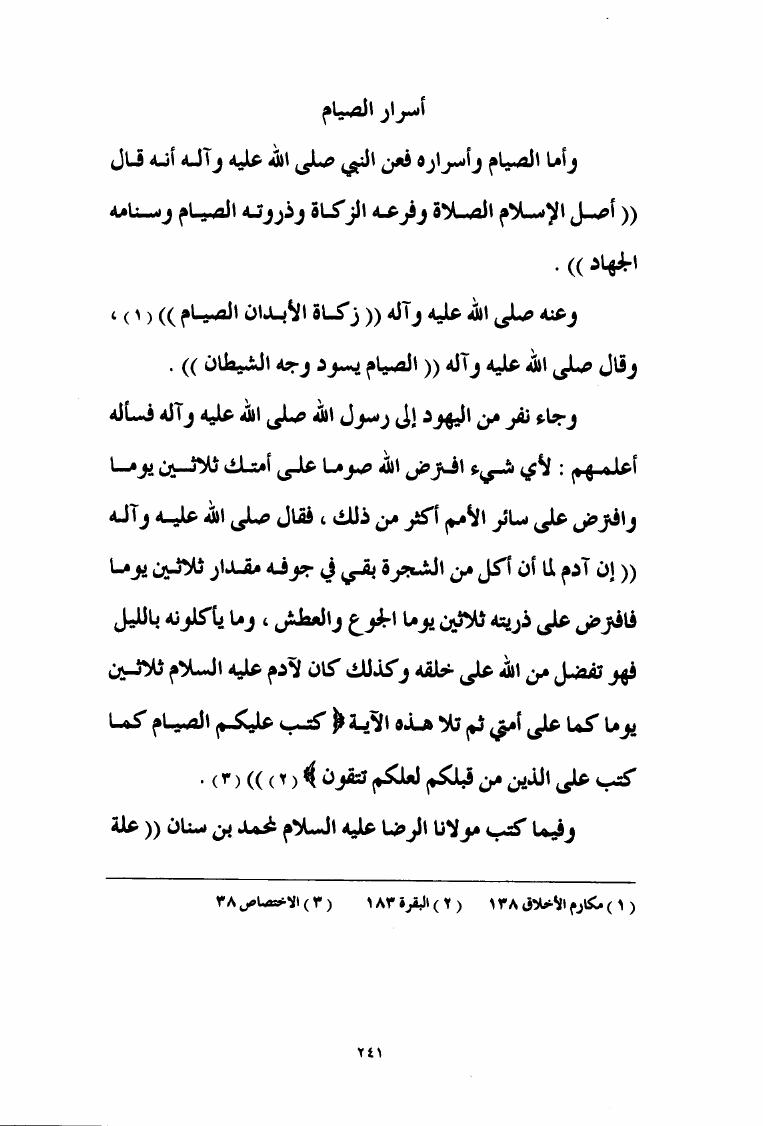 أسرار الصيام
وأما الصيام وأسراره فعن النبي صلى الله عليه وآله أنه قال
(( أصل الإسلام الصلاة وفرعه الزكاة وذروته الصيام وسنامه
الجهاد )) .
وعنه صلى الله عليه وآله (( زكاة الأبدان الصيام )) (١) ،
وقال صلى الله عليه وآله (( الصيام يسود وجه الشيطان )) .
وجاء نفر من اليهود إلى رسول الله صلى الله عليه وآله فسأله
أعلمهم : لأي شيء افترض الله صوما على أمتك ثلاثين يوما
وافترض على سائر الأمم أكثر من ذلك ، فقال صلى الله عليه وآله
(( إن آدم لما أن أكل من الشجرة بقي في جوفه مقدار ثلاثين يوما
فافترض على ذريته ثلاثين يوما الجوع والعطش ، وما يأكلونه بالليل
فهو تفضل من الله على خلقه وكذلك كان لآدم عليه السلام ثلاثين
يوما كما على أمتي ثم تلا هذه الآية ﴿ كتب عليكم الصيام كما
كتب على الذين من قبلكم لعلكم تتقون ﴾ (٢) )) (٣) .
وفيما كتب مولانا الرضا عليه السلام لمحمد بن سنان (( علة
(١) مكارم الأخلاق ١٣٨ (٢) البقرة ١٨٣ (٣) الاختصاص ٣٨
٢٤١